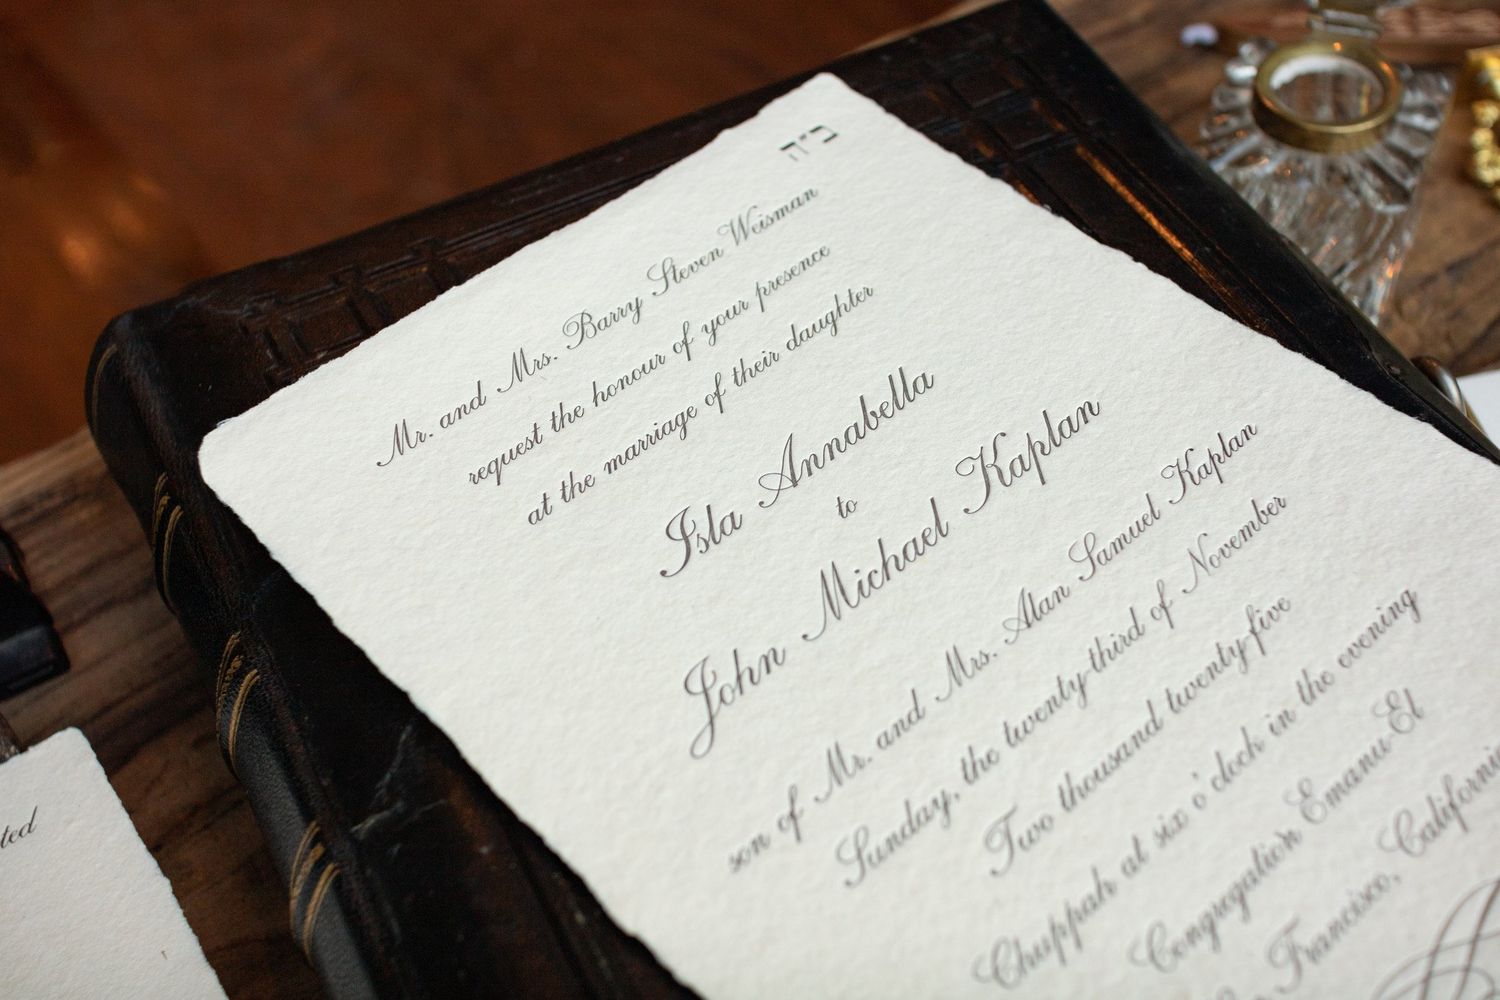 ב״ה
Mr. and Mrs. Barry Steven Weisman
request the honour of your presence
at the marriage of their daughter
Isla Annabella
to
John Michael Kaplan
son of Mr. and Mrs. Alan Samuel Kaplan
Sunday, the twenty-third of November
Two thousand twenty-five
Chuppah at six o'clock in the evening
Congregation Emanu-El
Francisco, California
ted